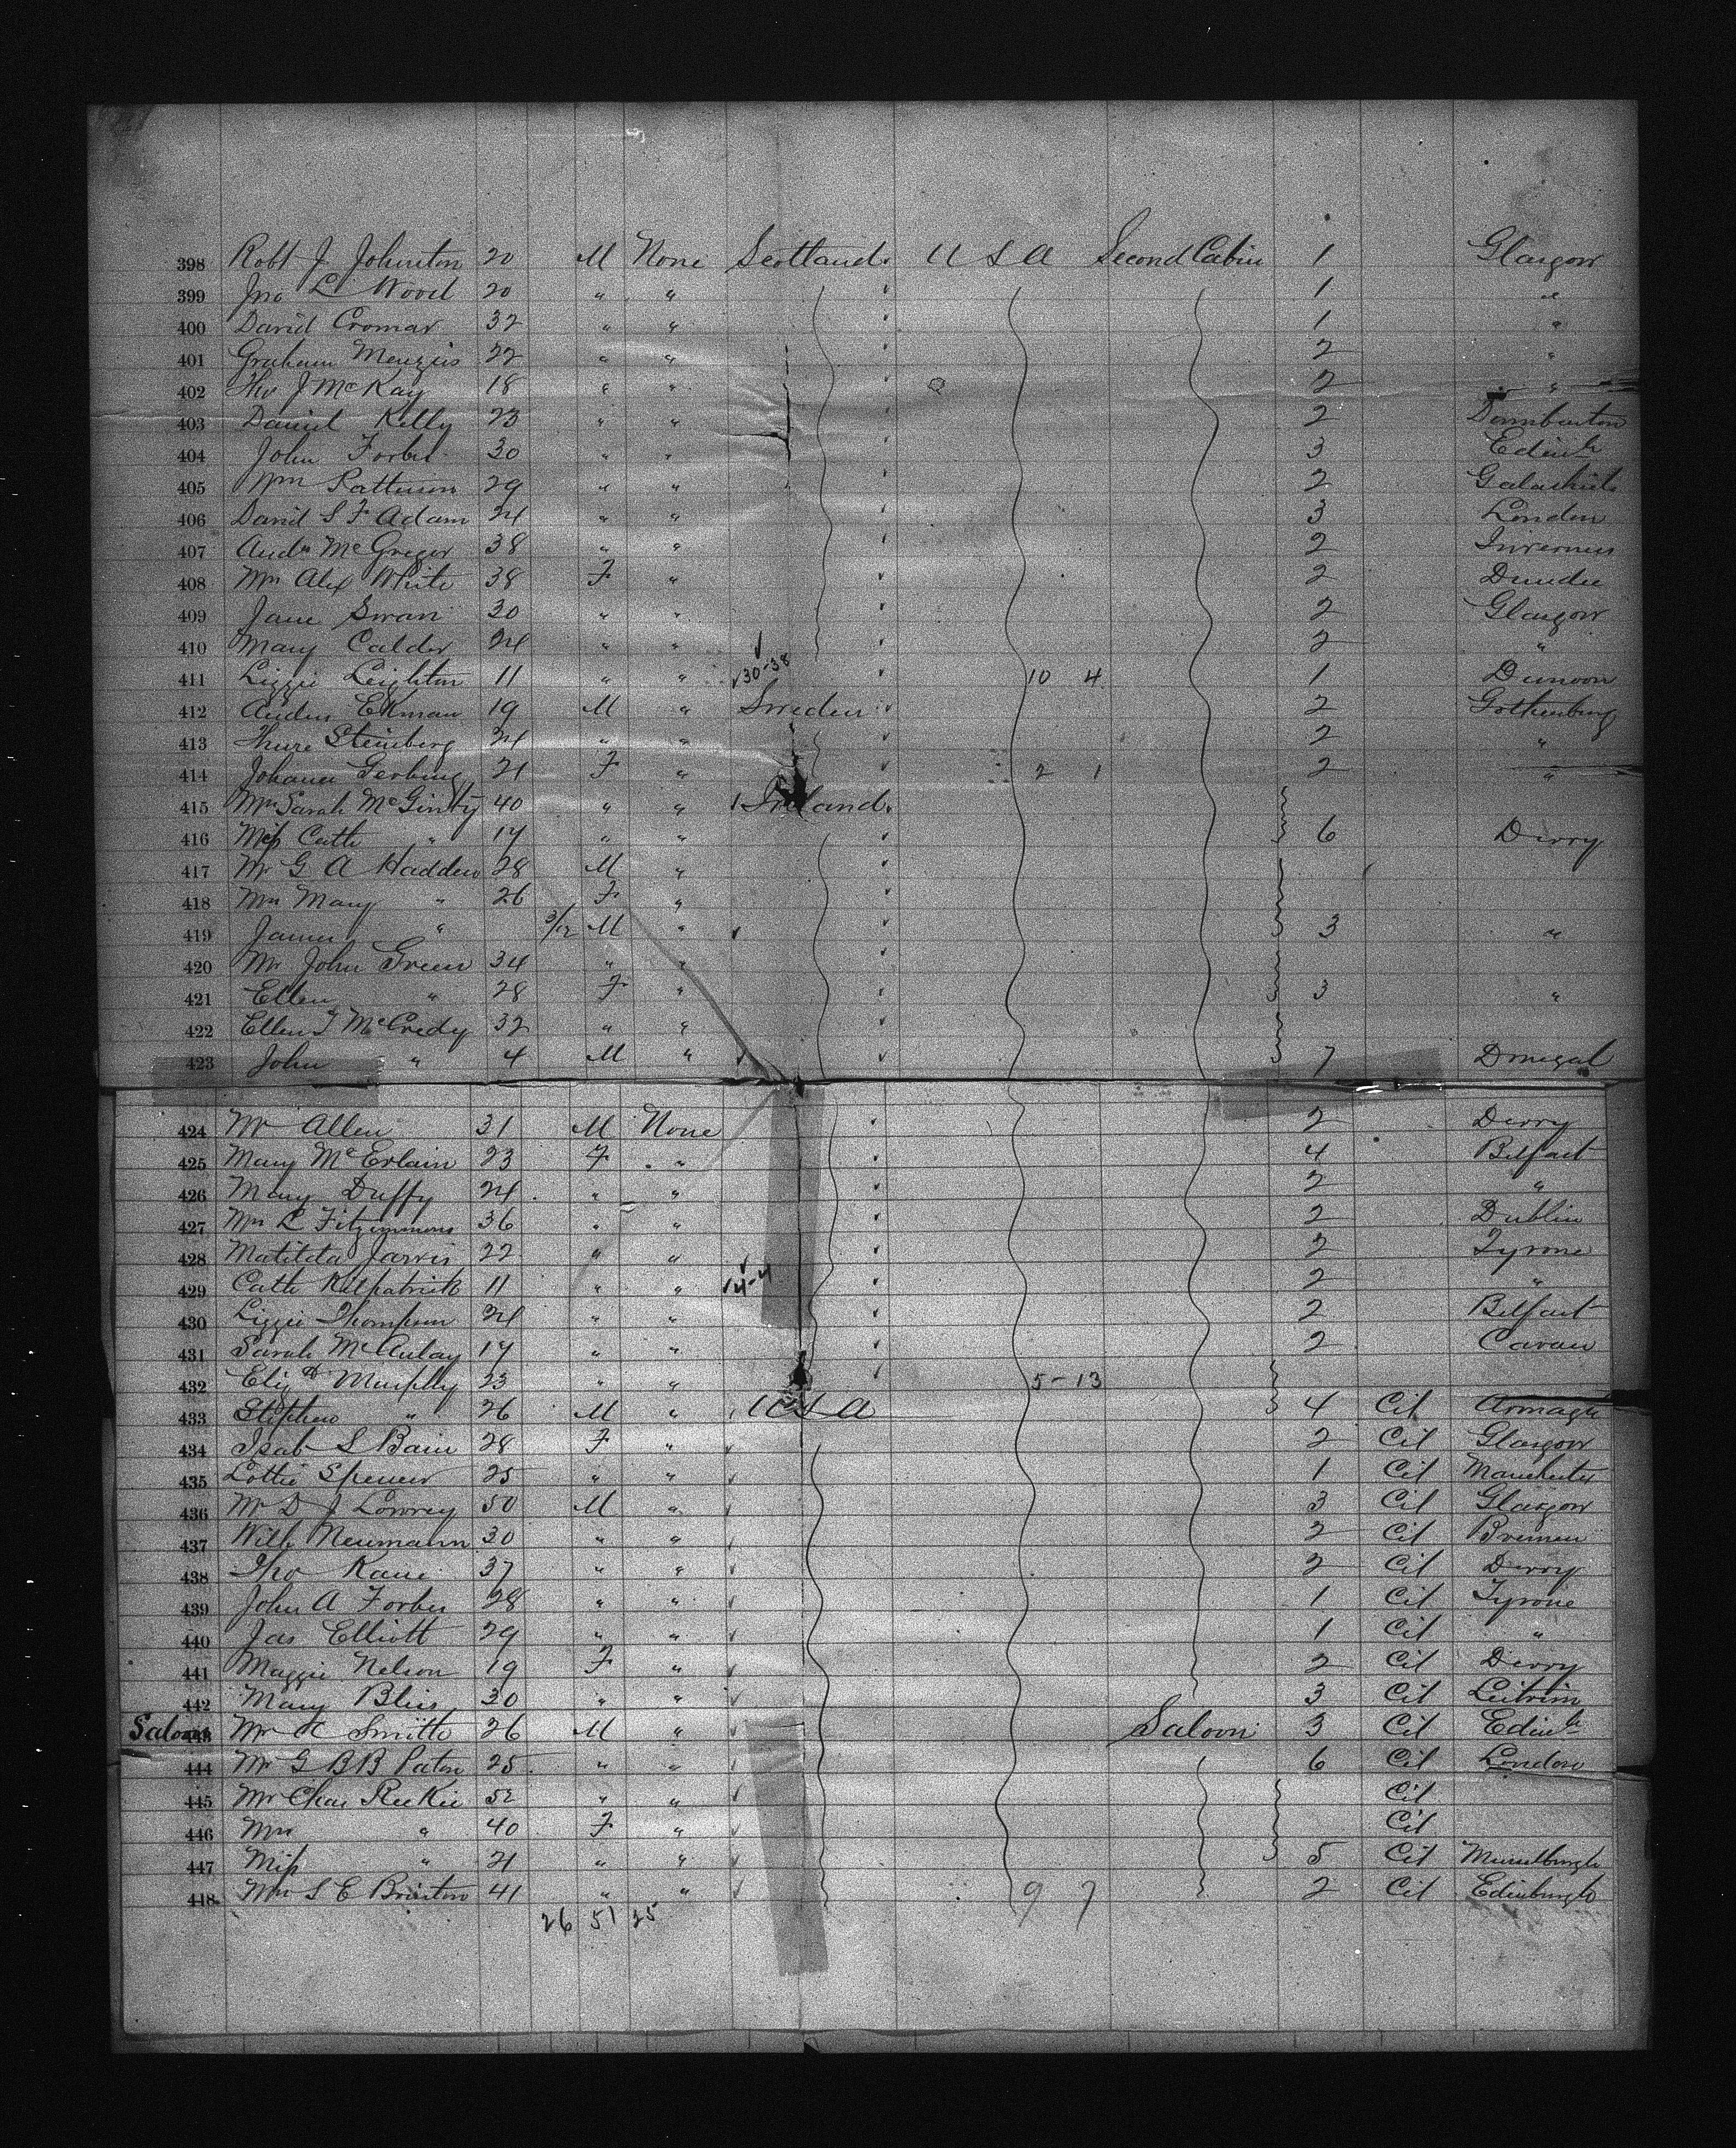 398 Robt J. Johnston 20 M None Scotland U S A Second Cabin 1 Glasgow
399 Jno L Wood 20 " " 1 "
400 David Cromar 32 " " 1 "
401 Graham Menzies 22 " " 2 "
402 Tho J McKay 18 " " 2 "
403 Daniel Kelly 23 " " 2 Dumbarton
404 John Forbes 30 " " 3 Edinh
405 Wm Patterson 29 " " 2 Galashiels
406 David S F Adam 24 " " 3 London
407 Andw McGregor 38 " " 2 Inverness
408 Mrs Alex White 38 F " 2 Dundee
409 Jane Swan 30 " " 2 Glasgow
410 Mary Calder 24 " " 2 "
411 Lizzie Leighton 11 " " 30-38 10 4 1 Dunoon
412 Ekman 19 M " Sweden 2 Gothenburg
413 Thure Steinberg 24 " " 2 "
414 Johanna Gerbing 21 F " 2 1 2 "
415 Mrs Sarah McGinty 40 " " Ireland
416 Miss Cath " 17 " " 6 Derry
417 Mr G A Hadden 28 M "
418 Mrs Mary " 26 F "
419 James " 3/12 M " 3 "
420 Mr John Green 34 " "
421 Ellen " 28 F " 3 "
422 Ellen J McCredy 32 " "
423 John " 4 M " 7 Donegal
424 Mr Allen 31 M None 2 Derry
425 Mary McErlain 23 F " 4 Belfast
426 Mary Duffy 24 " " 2 "
427 Mrs L Fitzimmons 36 " " 2 Dublin
428 Matilda Jarvis 22 " " 2 Tyrone
429 Cath Kilpatrick 11 " " 4-4 2 "
430 Lizzie Thompson 24 " " 2 Belfast
431 Sarah McAulay 17 " " 2 Cavan
432 Elizth Murphy 23 " " 5-13
433 Stephen " 26 M " U S A 4 Cit Armagh
434 Isab S Bain 28 F " 2 Cit Glasgow
435 Lottie Spencer 25 " " 1 Cit Manchester
436 Mr D J Lowrey 50 M " 3 Cit Glasgow
437 Wilh Neumann 30 " " 2 Cit Bremen
438 Tho Kane 37 " " 2 Cit Derry
439 John A Forbes 28 " " 1 Cit Tyrone
440 Jas Elliott 29 " " 1 Cit "
441 Maggie Nelson 19 F " 2 Cit Derry
442 Mary Bliss 30 " " 3 Cit Leitrim
Saloon 443 Mr Smith 26 M " Saloon 3 Cit Edinh
444 Mr G B B Paton 25 " " 6 Cit London
445 Mr Chas Reekie 52 " " Cit
446 Mrs " 40 F " Cit
447 Miss " 21 " " 5 Cit Musselburgh
448 Mrs S E Brinton 41 " " 9 7 2 Cit Edinburgh
26 51 25